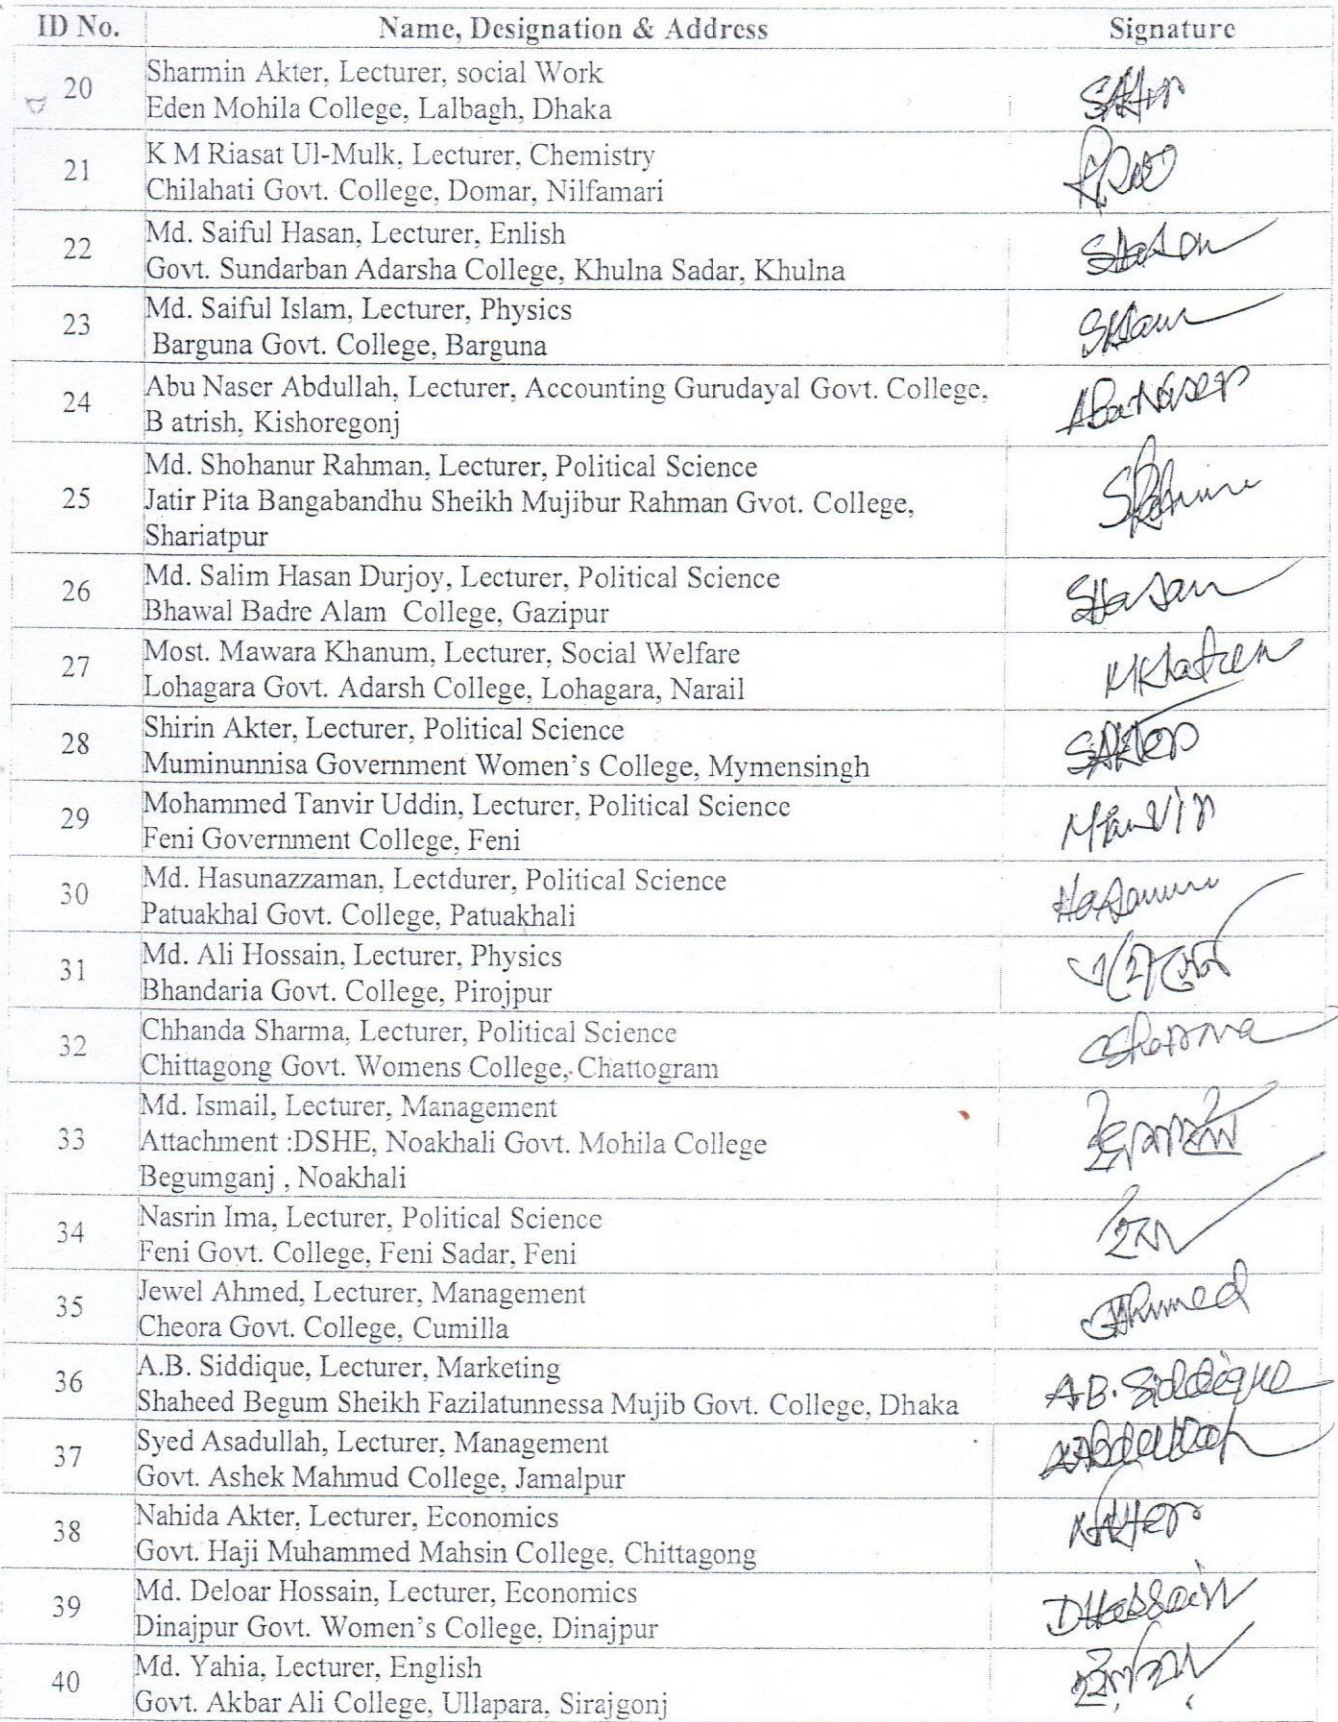 ID No. Name, Designation & Address Signature
20 Sharmin Akter, Lecturer, social Work
Eden Mohila College, Lalbagh, Dhaka
SAkter
21 K M Riasat Ul-Mulk, Lecturer, Chemistry
Chilahati Govt. College, Domar, Nilfamari
22 Md. Saiful Hasan, Lecturer, Enlish
Govt. Sundarban Adarsha College, Khulna Sadar, Khulna
SHasan
23 Md. Saiful Islam, Lecturer, Physics
Barguna Govt. College, Barguna
24 Abu Naser Abdullah, Lecturer, Accounting Gurudayal Govt. College,
B atrish, Kishoregonj
AbuNaser
25 Md. Shohanur Rahman, Lecturer, Political Science
Jatir Pita Bangabandhu Sheikh Mujibur Rahman Gvot. College,
Shariatpur
26 Md. Salim Hasan Durjoy, Lecturer, Political Science
Bhawal Badre Alam College, Gazipur
SHasan
27 Most. Mawara Khanum, Lecturer, Social Welfare
Lohagara Govt. Adarsh College, Lohagara, Narail
28 Shirin Akter, Lecturer, Political Science
Muminunnisa Government Women's College, Mymensingh
SAkter
29 Mohammed Tanvir Uddin, Lecturer, Political Science
Feni Government College, Feni
30 Md. Hasunazzaman, Lectdurer, Political Science
Patuakhal Govt. College, Patuakhali
31 Md. Ali Hossain, Lecturer, Physics
Bhandaria Govt. College, Pirojpur
32 Chhanda Sharma, Lecturer, Political Science
Chittagong Govt. Womens College, Chattogram
CSharma
33 Md. Ismail, Lecturer, Management
Attachment :DSHE, Noakhali Govt. Mohila College
Begumganj , Noakhali
34 Nasrin Ima, Lecturer, Political Science
Feni Govt. College, Feni Sadar, Feni
ইমা
35 Jewel Ahmed, Lecturer, Management
Cheora Govt. College, Cumilla
JAhmed
36 A.B. Siddique, Lecturer, Marketing
Shaheed Begum Sheikh Fazilatunnessa Mujib Govt. College, Dhaka
A.B. Siddique
37 Syed Asadullah, Lecturer, Management
Govt. Ashek Mahmud College, Jamalpur
38 Nahida Akter, Lecturer, Economics
Govt. Haji Muhammed Mahsin College, Chittagong
NAkter
39 Md. Deloar Hossain, Lecturer, Economics
Dinajpur Govt. Women's College, Dinajpur
DHossain
40 Md. Yahia, Lecturer, English
Govt. Akbar Ali College, Ullapara, Sirajgonj